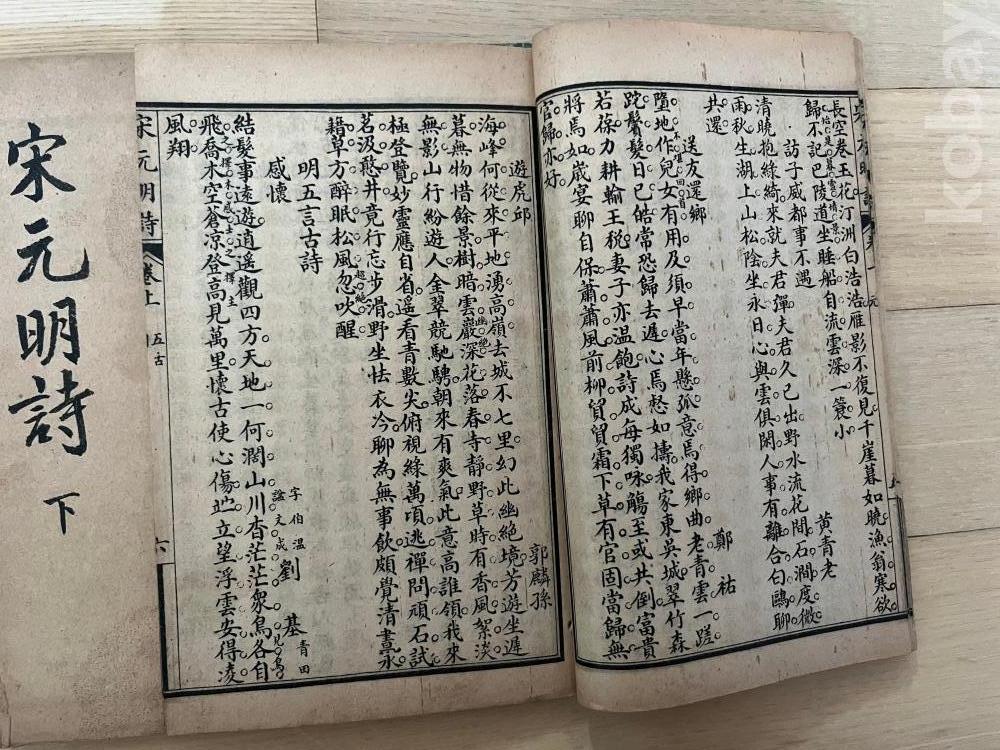 長空卷玉花汀洲白浩浩雁影不復見千崖暮如曉漁翁寒欲
歸不記巴陵道坐睡船自流雲深一簑小
訪子威都事不遇 黃青老
清曉抱綠綺來就夫君彈夫君久已出野水流花間石澗度微
雨秋生湖上山松陰坐永日心與雲俱閑人事有離合白鷗聊
共還
送友還鄉 鄭祐
不堪回首
墮地作兒女有用及須早當年懸弧意焉得鄉曲老青雲一蹉
跎鬢髮日已皓常恐歸去遲心焉惄如擣我家東吳城翠竹森
若葆力耕輸王稅妻子亦温飽詩成每獨咏觴至或共倒富貴
將焉如歲宴聊自保蕭蕭風前柳貿貿霜下草有官固當歸無
官歸亦好
遊虎邱 郭麟孫
海峰何從來平地湧高嶺去城不七里幻此幽絶境芳遊坐遲
幽絶
暮無物惜餘景樹暗雲巖深花落春寺靜野草時有香風絮淡
無影山行紛遊人金翠競馳騁朝來有爽氣此意高誰領我來
極登覽妙靈應自省遥看青數尖俯視綠萬頃逃禪問頑石試
茗汲憨井竟行忘步滑野坐怯衣冷聊為無事飲頗覺清晝永
超絶
藉草方醉眠松風忽吹醒
明五言古詩
感懷 字伯温 諡文成 劉基 青田
結髮事遠遊逍遥觀四方天地一何濶山川杳茫茫衆鳥各自
見鳥之擇木感士之擇主
飛喬木空蒼凉登高見萬里懷古使心傷竚立望浮雲安得凌
風翔
宋元明詩 卷上 五古 六
宋元明詩 下
kobay